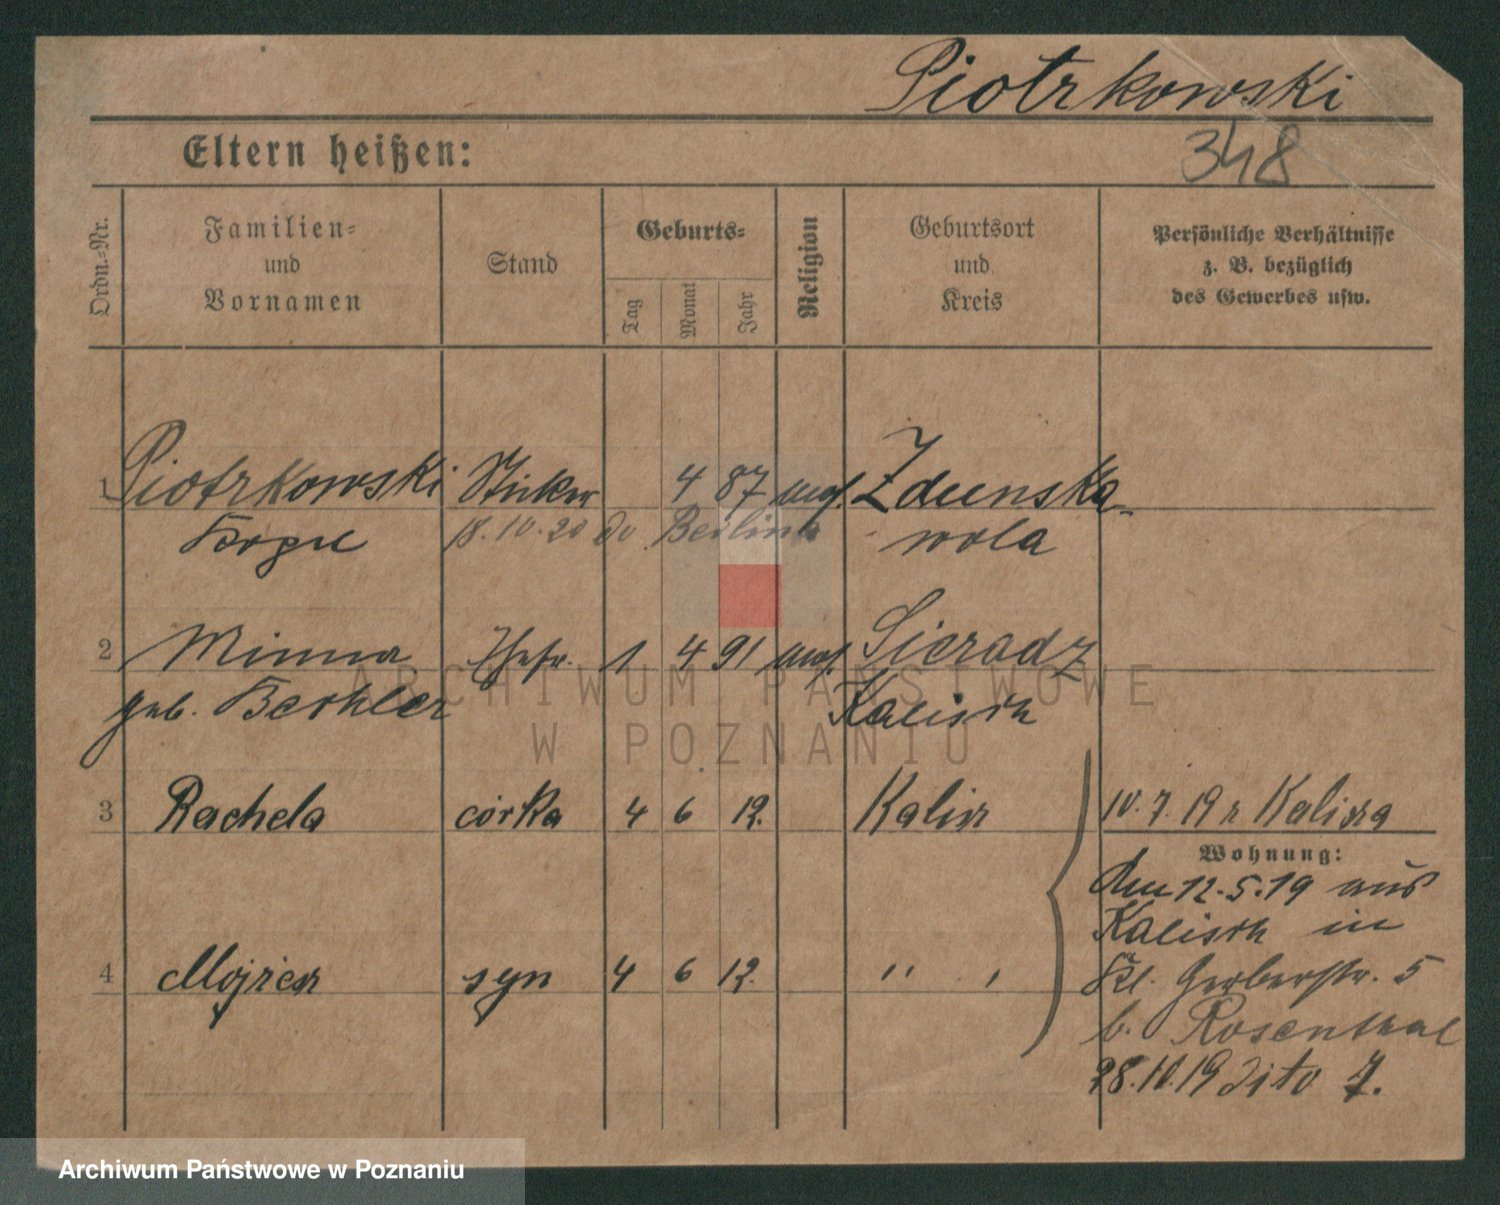 Piotrkowski
348
Eltern heißen:
Ordn.-Nr.
Familien-
und
Vornamen
Stand
Geburts-
Tag
Monat
Jahr
Religion
Geburtsort
und
Kreis
Persönliche Verhältnisse
z. B. bezüglich
des Gewerbes usw.
1 Piotrkowski 4 87 mos. Zdunska-
18.10.20 do Berlina wola
2 Minna Ehefr. 1 4 91 mos. Sieradz
geb. Kalisch
3 Rachela córka 4 6 12. Kalisz 10.7.19 z Kalisza
Wohnung:
den 12.5.19 aus
Kalisch in
4 Mojżesz syn 4 6 12. " "
Kl. Gerberstr. 5
b. Rosenthal
28.10.19 dito 7.
ARCHIWUM PAŃSTWOWE
W POZNANIU
Archiwum Państwowe w Poznaniu